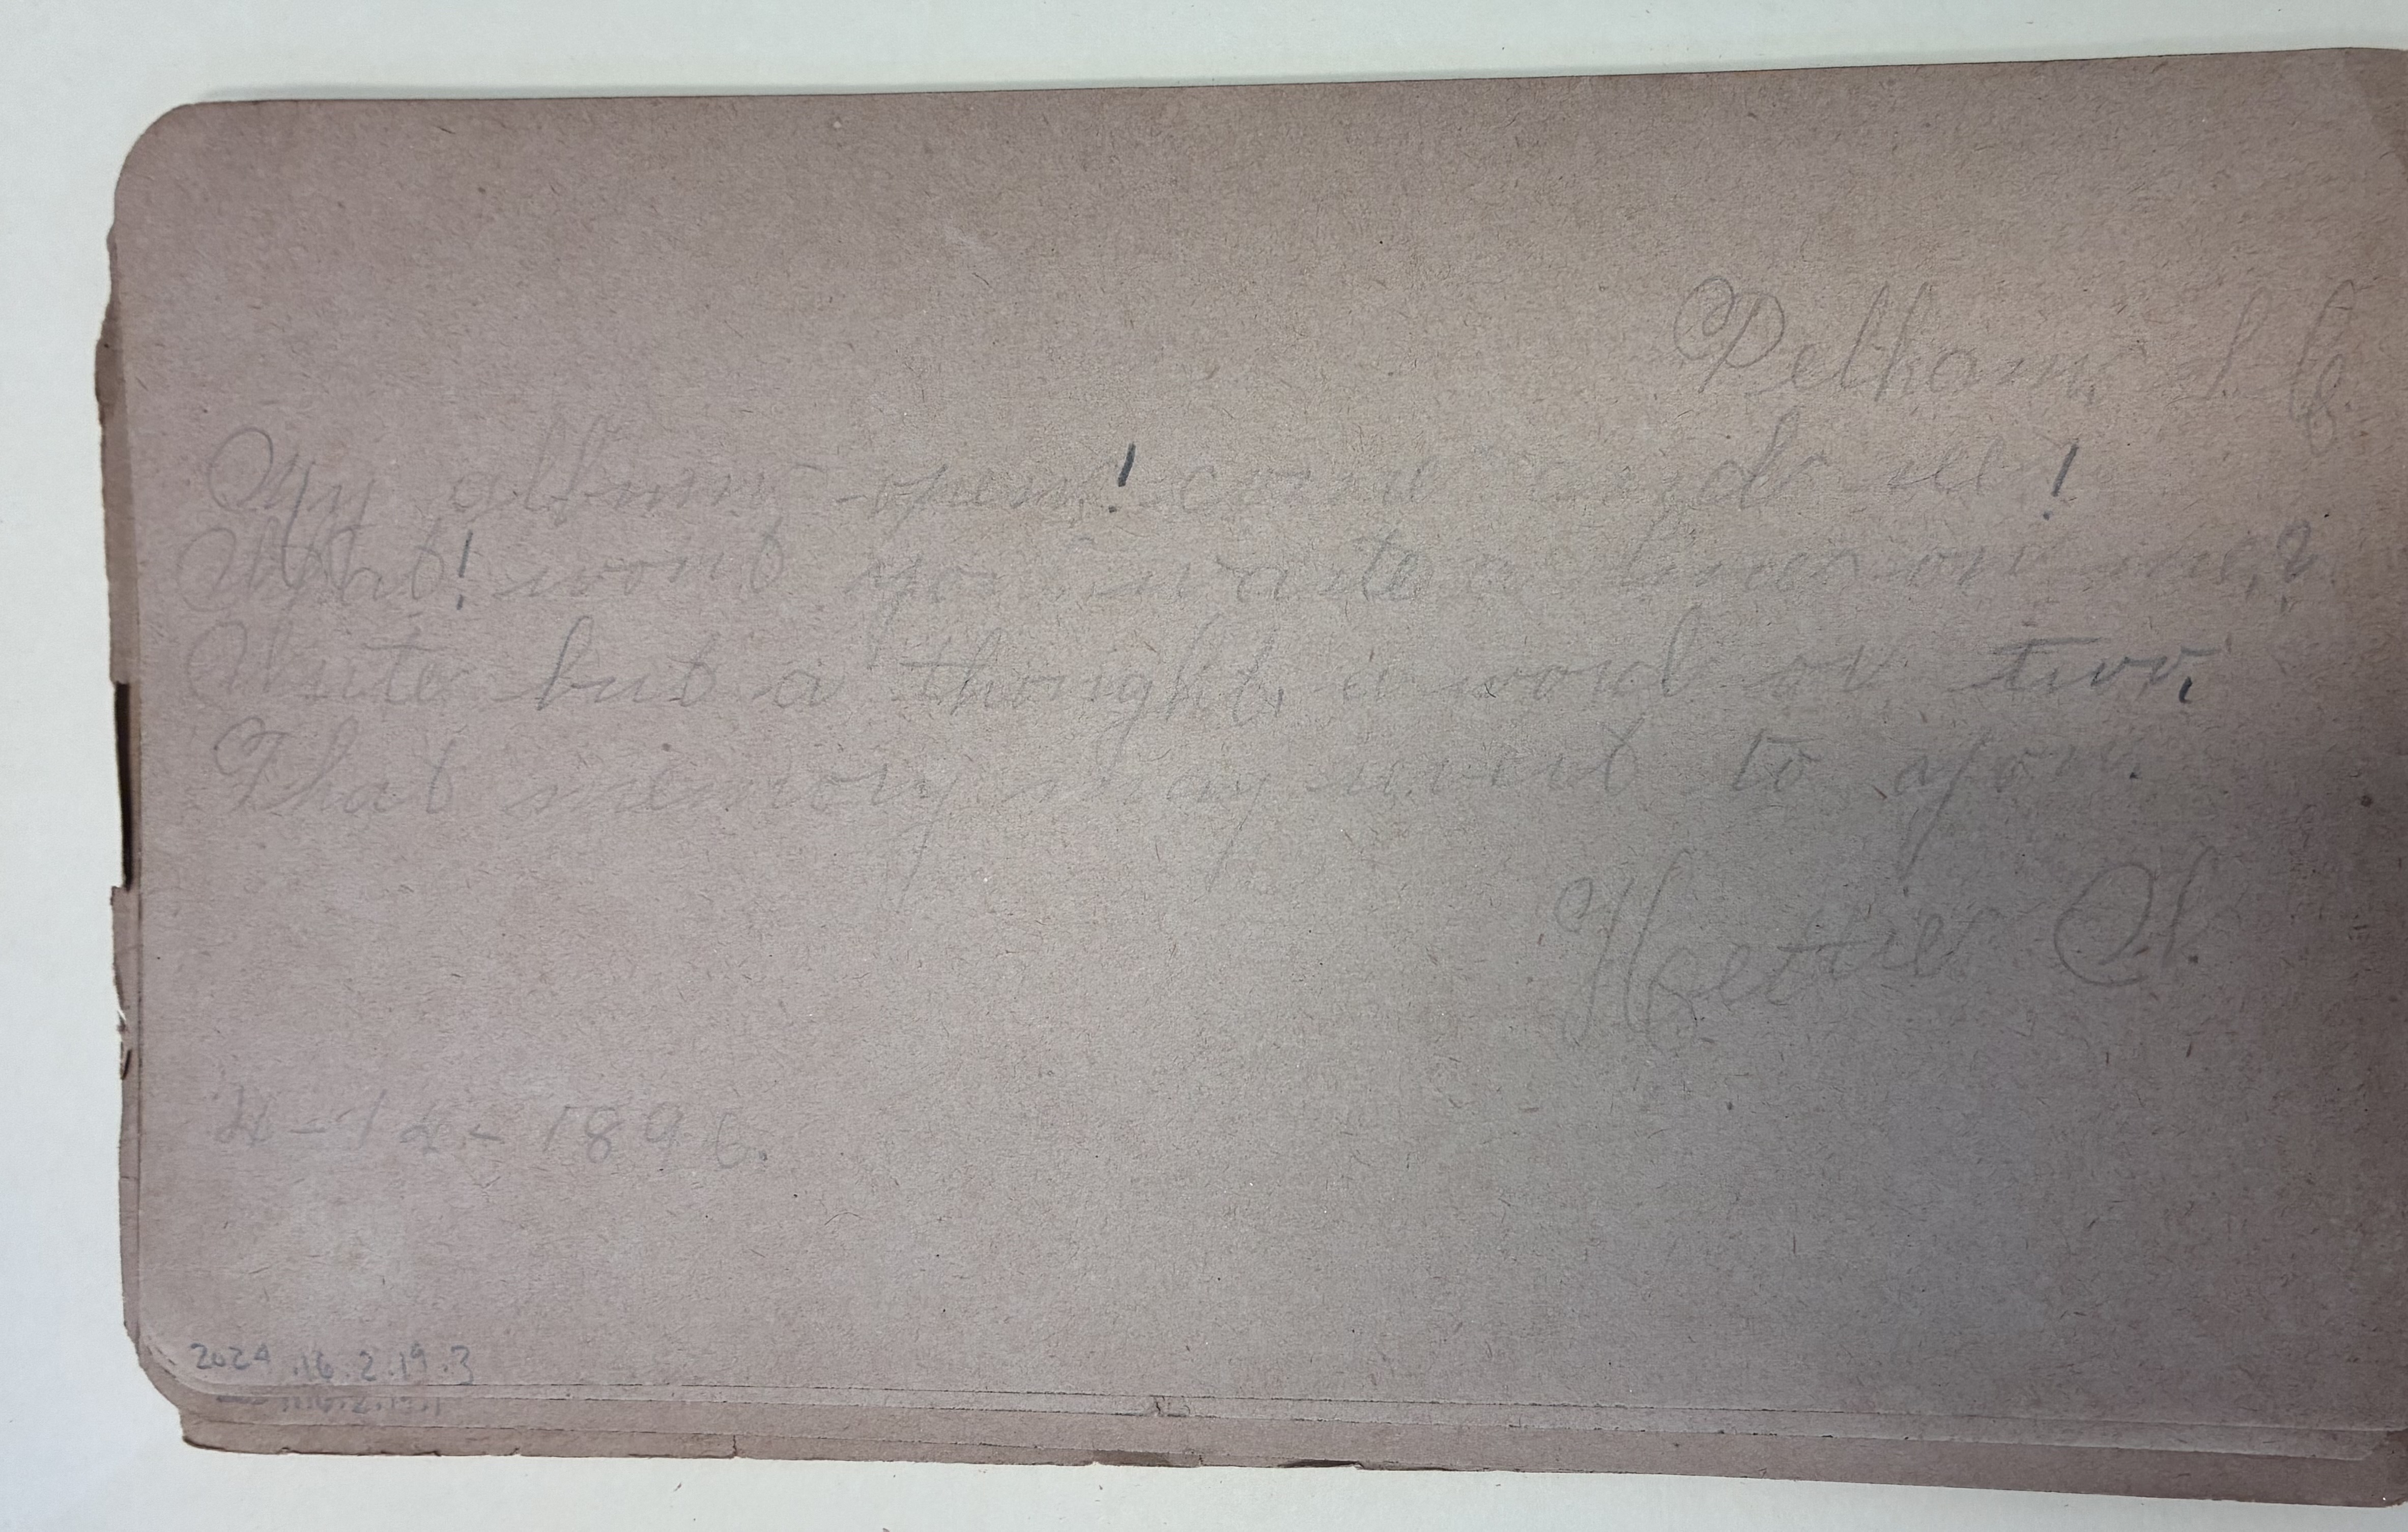 Pelham, S. C.
My album open! come and see!
What! wont you waite a line on me?
Write but a thought, a word or two,
That memory may revert to you.
Hettie
4-14-1896.
2024.16.2.19.3